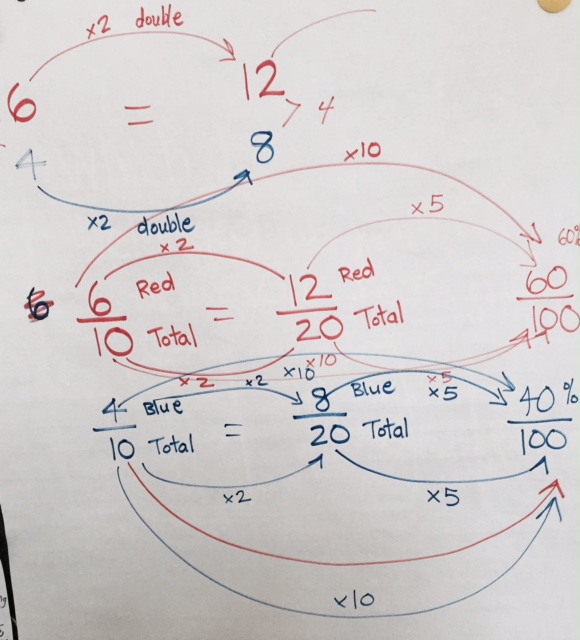 x2 double
6 = 12
> 4
4 8
x2 double
x10
x2
x5
60%
6 6 Red = 12 Red 60
10 Total 20 Total 100
x10
x2 x2 x10 x5
x5
4 Blue = 8 Blue 40%
10 Total 20 Total 100
x2 x5
x10